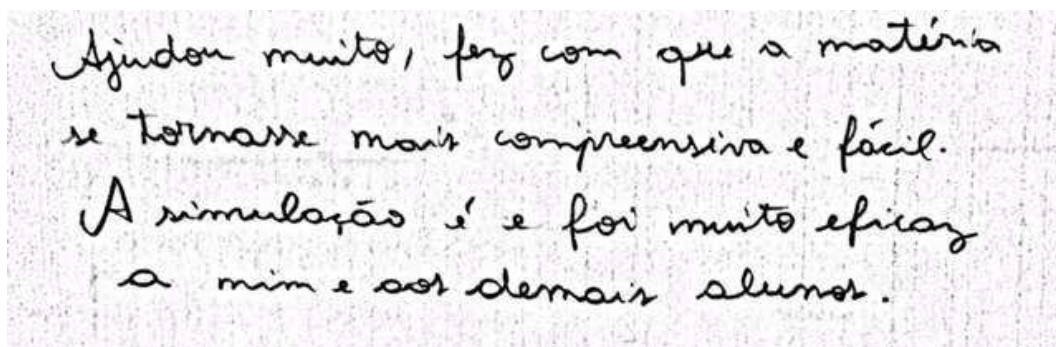 Ajudou muito, fez com que a matéria
se tornasse mais compreensiva e fácil.
A simulação é e foi muito eficaz
a mim e aos demais alunos.